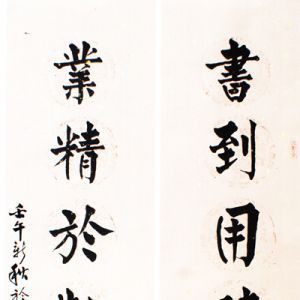 書到用
業精於
壬午新秋於